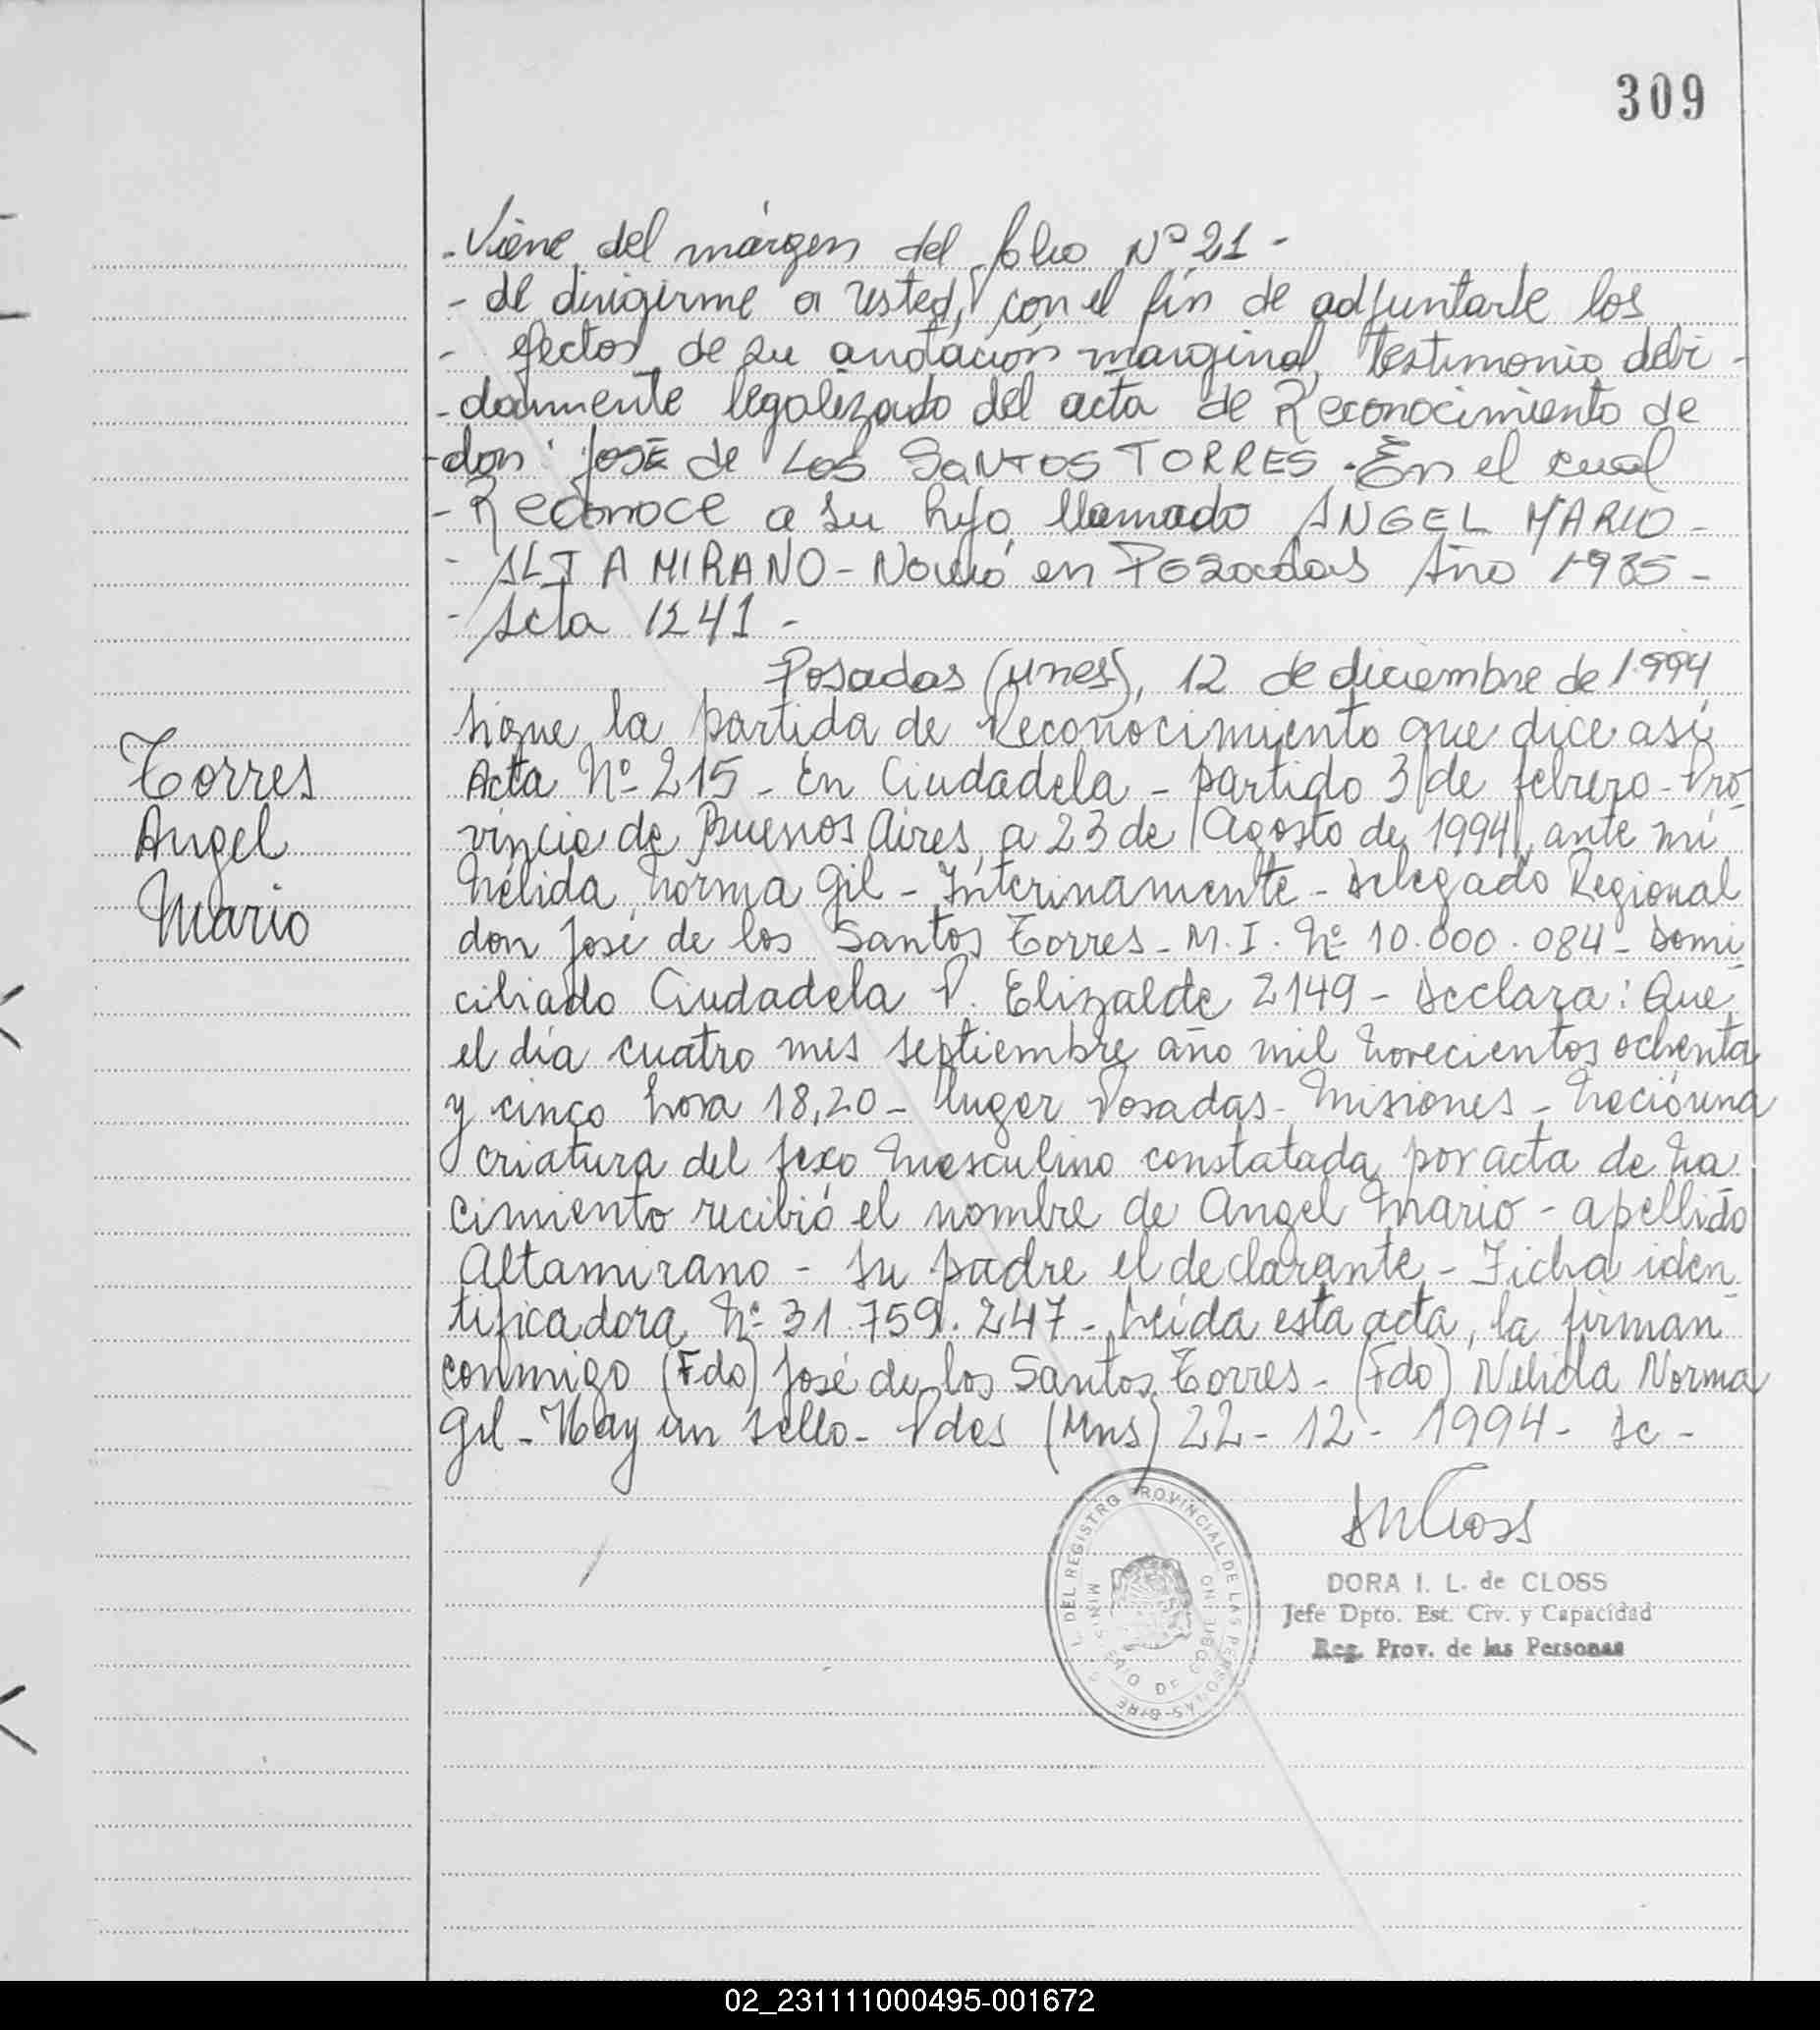 309
- Viene del márgen del folio Nº 21 -
- de dirigirme a usted, con el fin de adjuntarle los
- efectos de su anotación marginal, testimonio debi -
- damente legalizado del acta de Reconocimiento de
- don: JOSÉ de LOS SANTOS TORRES. En el cual
- Reconoce a su hijo llamado ANGEL MARIO -
- ALTAMIRANO - Nació en Posadas Año 1985 -
- Acta 1241 -
Posadas (Mnes), 12 de diciembre de 1994
Sigue la partida de Reconocimiento que dice así
Acta Nº 215 - En Ciudadela - partido 3 de febrero - Pro
vincia de Buenos Aires, a 23 de Agosto de 1994, ante mí
Nélida Norma Gil - Interinamente - Delegado Regional
don José de los Santos Torres - M.I. Nº 10.000.084 - Domi
ciliado Ciudadela P. Elizalde 2149 - Declara: Que
el día cuatro mes septiembre año mil novecientos ochenta
y cinco hora 18,20 - lugar Posadas - Misiones - Nació una
criatura del sexo masculino constatada por acta de na
cimiento recibió el nombre de Angel Mario - apellido
Altamirano - Su padre el declarante - Ficha iden
tificadora Nº 31.759.247 - Leída esta acta, la firman
conmigo (Fdo) José de los Santos Torres - (Fdo) Nélida Norma
Gil - Hay un sello - Pdas (Mns) 22 - 12 - 1994 - Dc -
Torres
Angel
Mario
DEL REGISTRO PROVINCIAL DE LAS PERSONAS
MINISTERIO DE GOBIERNO
DORA I. L. de CLOSS
Jefe Dpto. Est. Civ. y Capacidad
Reg. Prov. de las Personas
02_231111000495-001672